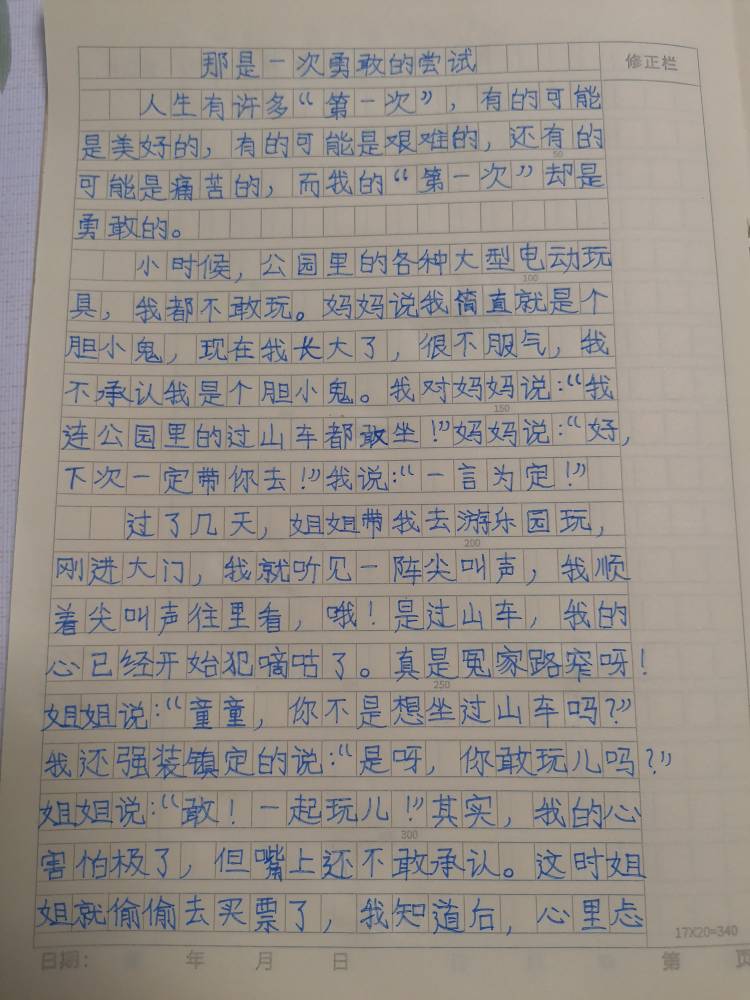 那是一次勇敢的尝试
修正栏
人生有许多“第一次”，有的可能
是美好的，有的可能是艰难的，还有的
50
可能是痛苦的，而我的“第一次”却是
勇敢的。
小时候，公园里的各种大型电动玩
100
具，我都不敢玩。妈妈说我简直就是个
胆小鬼，现在我长大了，很不服气，我
不承认我是个胆小鬼。我对妈妈说：“我
150
连公园里的过山车都敢坐！”妈妈说：“好，
下次一定带你去！”我说：“一言为定！”
过了几天，姐姐带我去游乐园玩，
200
刚进大门，我就听见一阵尖叫声，我顺
着尖叫声往里看，哦！是过山车，我的
心已经开始犯嘀咕了。真是冤家路窄呀！
250
姐姐说：“童童，你不是想坐过山车吗？”
我还强装镇定的说：“是呀，你敢玩儿吗？”
姐姐说：“敢！一起玩儿！”其实，我的心
300
害怕极了，但嘴上还不敢承认。这时姐
姐就偷偷去买票了，我知道后，心里忐
17X20=340
日期： 年 月 日 第 页